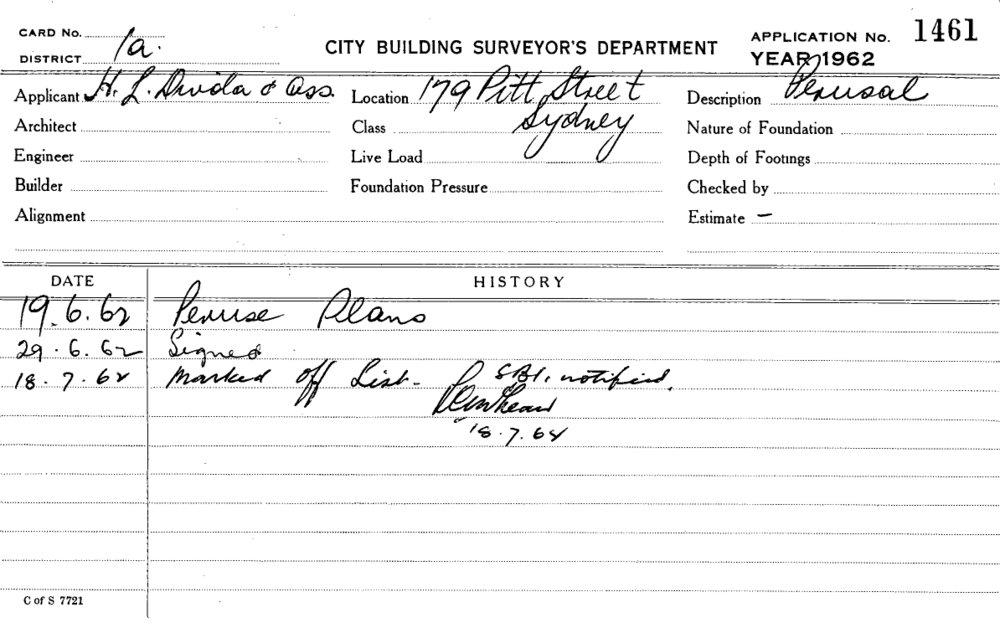 CARD No.
DISTRICT 1a.
CITY BUILDING SURVEYOR'S DEPARTMENT
APPLICATION No. 1461
YEAR 1962
Applicant H. L. & Ass. Location 179 Pitt Street Description Perusal
Architect Class Sydney Nature of Foundation
Engineer Live Load Depth of Footings
Builder Foundation Pressure Checked by
Alignment Estimate –
DATE HISTORY
19.6.62 Peruse Plans
29.6.62 Signed
18.7.62 Marked off List - SBI. notified.
18.7.62
C of S 7721